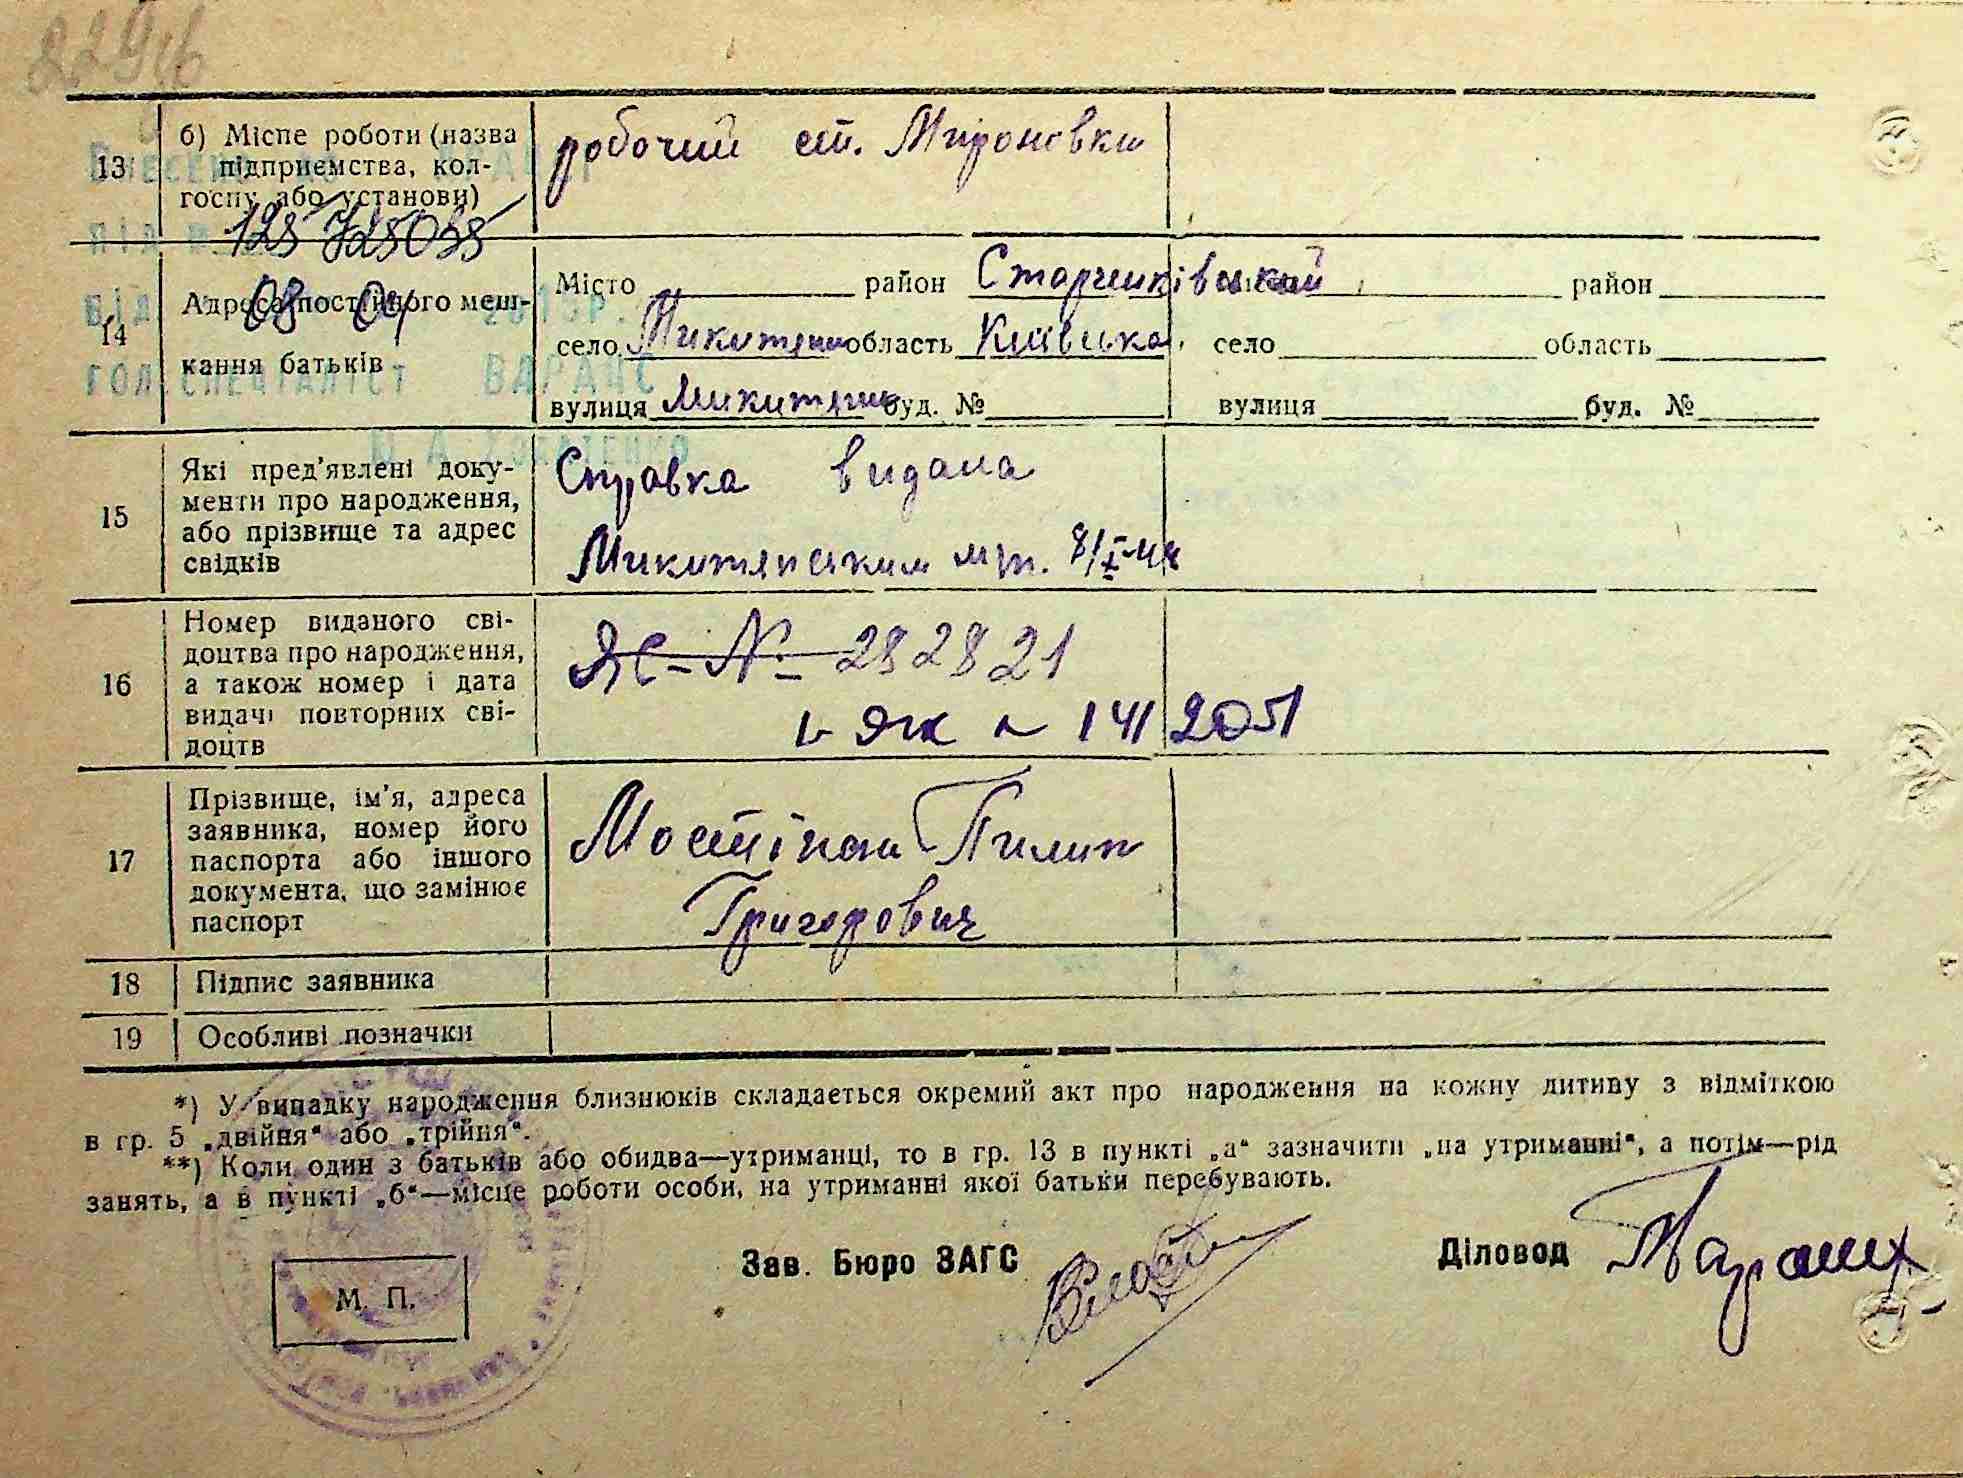 229
13
б) Місце роботи (назва
підприємства, кол-
госпу або установи)
робочий ст. Мироновка
ВНЕСЕНО
ПІД №
125 725055
14
Адреса постійного меш-
кання батьків
08 04
ГОЛ.СПЕЦІАЛІСТ ВАРДАЄ
Місто район Старченківський район
село Микитяни область Київська село область
вулиця Микитяни буд. № вулиця буд. №
15
Які пред'явлені доку-
менти про народження,
або прізвище та адрес
свідків
Справка видана
Микитянським 8/X-44
16
Номер виданого сві-
доцтва про народження,
а також номер і дата
видачі повторних сві-
доцтв
ЯЄ-№ 282821
141 2051
17
Прізвище, ім'я, адреса
заявника, номер його
паспорта або іншого
документа, що замінює
паспорт
Мостіпан Пилип
Григорович
18 Підпис заявника
19 Особливі позначки
*) У випадку народження близнюків складається окремий акт про народження на кожну дитину з відміткою
в гр. 5 „двійня“ або „трійня“.
**) Коли один з батьків або обидва—утриманці, то в гр. 13 в пункті „а“ зазначити „на утриманні“, а потім—рід
занять, а в пункті „б“—місце роботи особи, на утриманні якої батьки перебувають.
М. П.
Зав. Бюро ЗАГС
Діловод